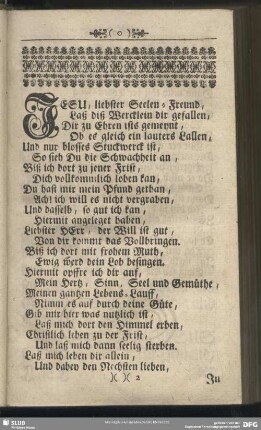 )( o )(
JESU, liebster Seelen-Freund,
Laß diß Wercklein dir gefallen,
Dir zu Ehren ists gemeynt,
Ob es gleich ein lauters Lallen,
Und nur blosses Stuckwerck ist,
So sieh Du die Schwachheit an,
Biß ich dort zu jener Frist,
Dich vollkommlich loben kan,
Du hast mir mein Pfund gethan,
Ach! ich will es nicht vergraben,
Und dasselb, so gut ich kan,
Hiermit angeleget haben,
Liebster HErr, der Will ist gut,
Von dir kommt das Vollbringen.
Biß ich dort mit frohem Muth,
Ewig werd dein Lob besingen.
Hiermit opffre ich dir auf,
Mein Hertz, Sinn, Seel und Gemüthe,
Meinen gantzen Lebens-Lauff,
Nimm es auf durch deine Güte,
Gib mir hier was nutzlich ist,
Laß mich dort den Himmel erben,
Christlich leben zu der Frist,
Und laß mich dann seelig sterben.
Laß mich leben dir allein,
Und dabey den Nechsten lieben,
)( )( 2
In
SLUB
DFG